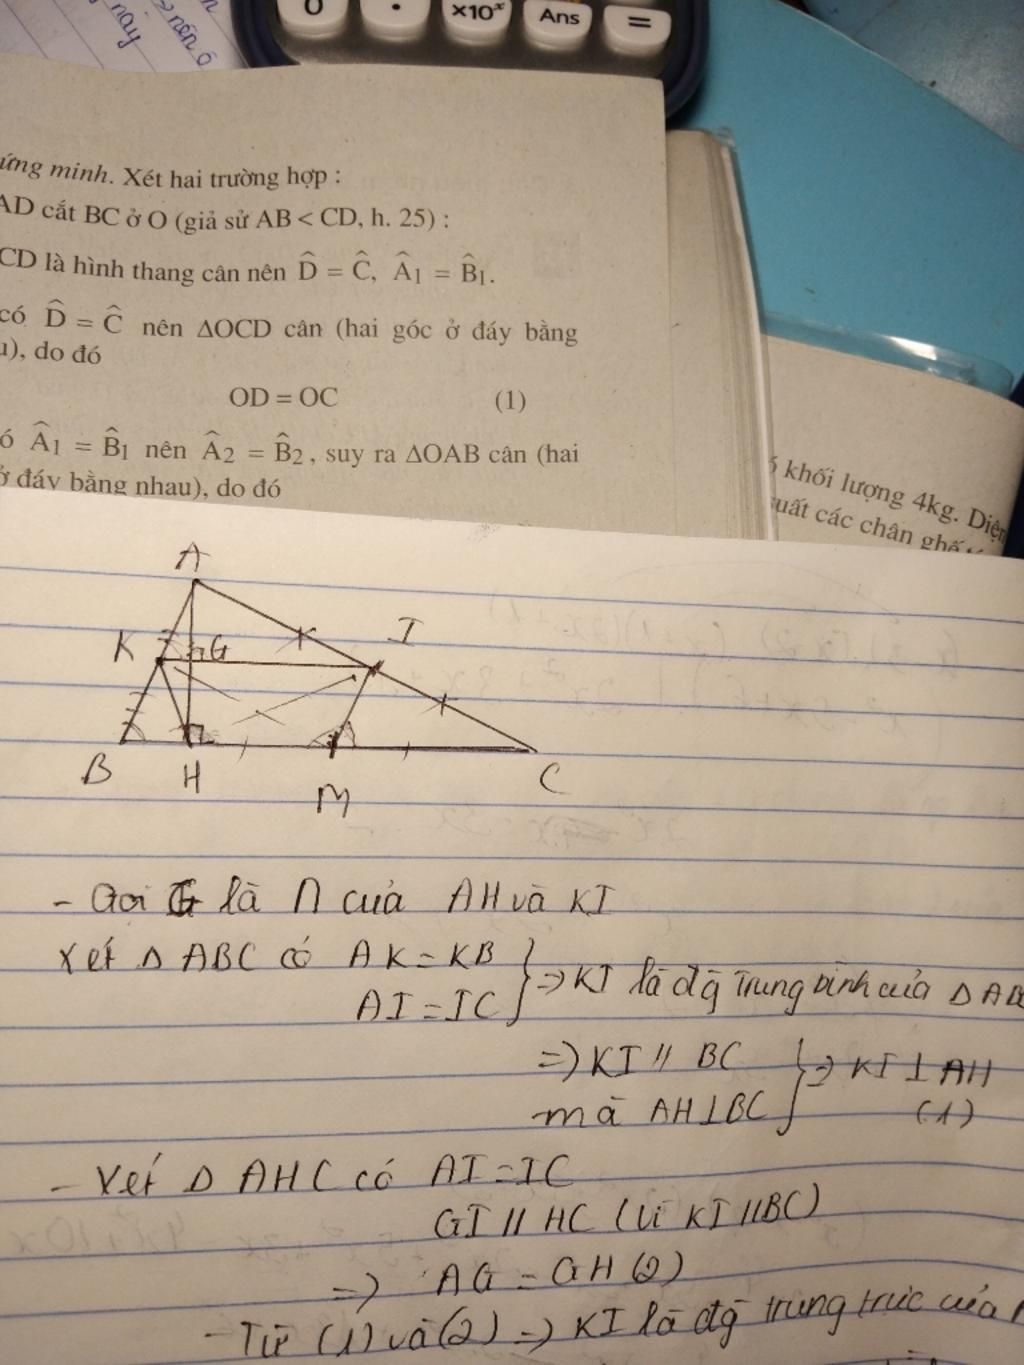 này
nên
0
.
×10ˣ
Ans
=
ứng minh. Xét hai trường hợp :
AD cắt BC ở O (giả sử AB < CD, h. 25) :
CD là hình thang cân nên D̂ = Ĉ, Â1 = B̂1.
có D̂ = Ĉ nên ΔOCD cân (hai góc ở đáy bằng
u), do đó
OD = OC (1)
ó Â1 = B̂1 nên Â2 = B̂2, suy ra ΔOAB cân (hai
ở đáy bằng nhau), do đó
khối lượng 4kg. Diện
suất các chân ghế
A
K G I
B H M C
- Gọi G là ∩ của AH và KI
Xét Δ ABC có AK = KB
AI = IC } => KI là đg trung bình của Δ ABC
=> KI // BC
mà AH ⊥ BC } => KI ⊥ AH
(1)
- Xét Δ AHC có AI = IC
GI // HC (vì KI // BC)
=> AG = GH (2)
- Từ (1) và (2) => KI là đg trung trực của